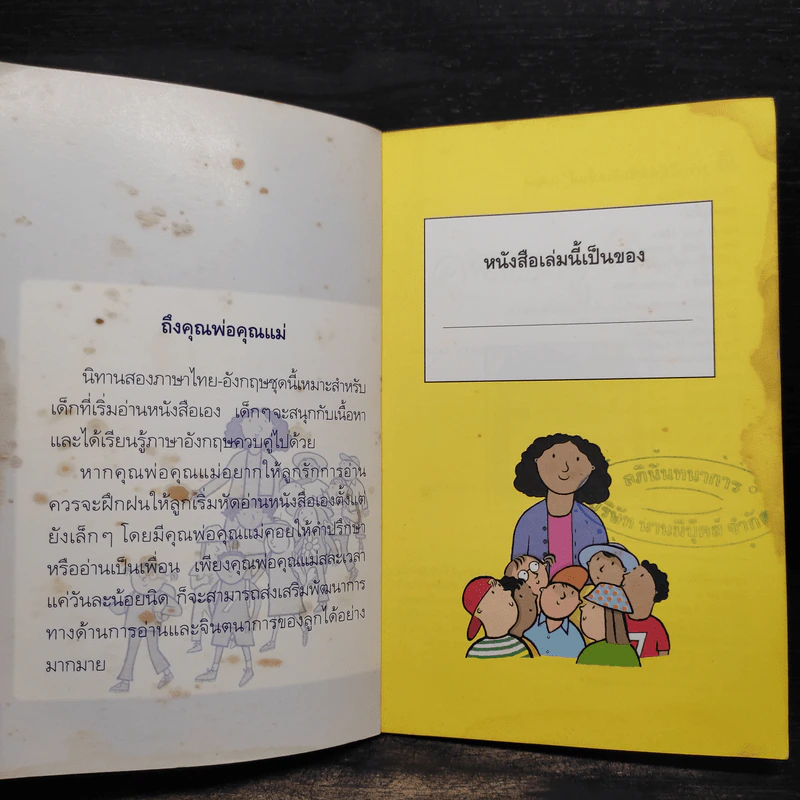 ถึงคุณพ่อคุณแม่
นิทานสองภาษาไทย-อังกฤษชุดนี้เหมาะสำหรับ
เด็กที่เริ่มอ่านหนังสือเอง เด็กๆจะสนุกกับเนื้อหา
และได้เรียนรู้ภาษาอังกฤษควบคู่ไปด้วย
หากคุณพ่อคุณแม่อยากให้ลูกรักการอ่าน
ควรจะฝึกฝนให้ลูกเริ่มหัดอ่านหนังสือเองตั้งแต่
ยังเล็กๆ โดยมีคุณพ่อคุณแม่คอยให้คำปรึกษา
หรืออ่านเป็นเพื่อน เพียงคุณพ่อคุณแม่สละเวลา
แค่วันละน้อยนิด ก็จะสามารถส่งเสริมพัฒนาการ
ทางด้านการอ่านและจินตนาการของลูกได้อย่าง
มากมาย
หนังสือเล่มนี้เป็นของ
อภินันทนาการ
บริษัท นานมีบุ๊คส์ จำกัด
7